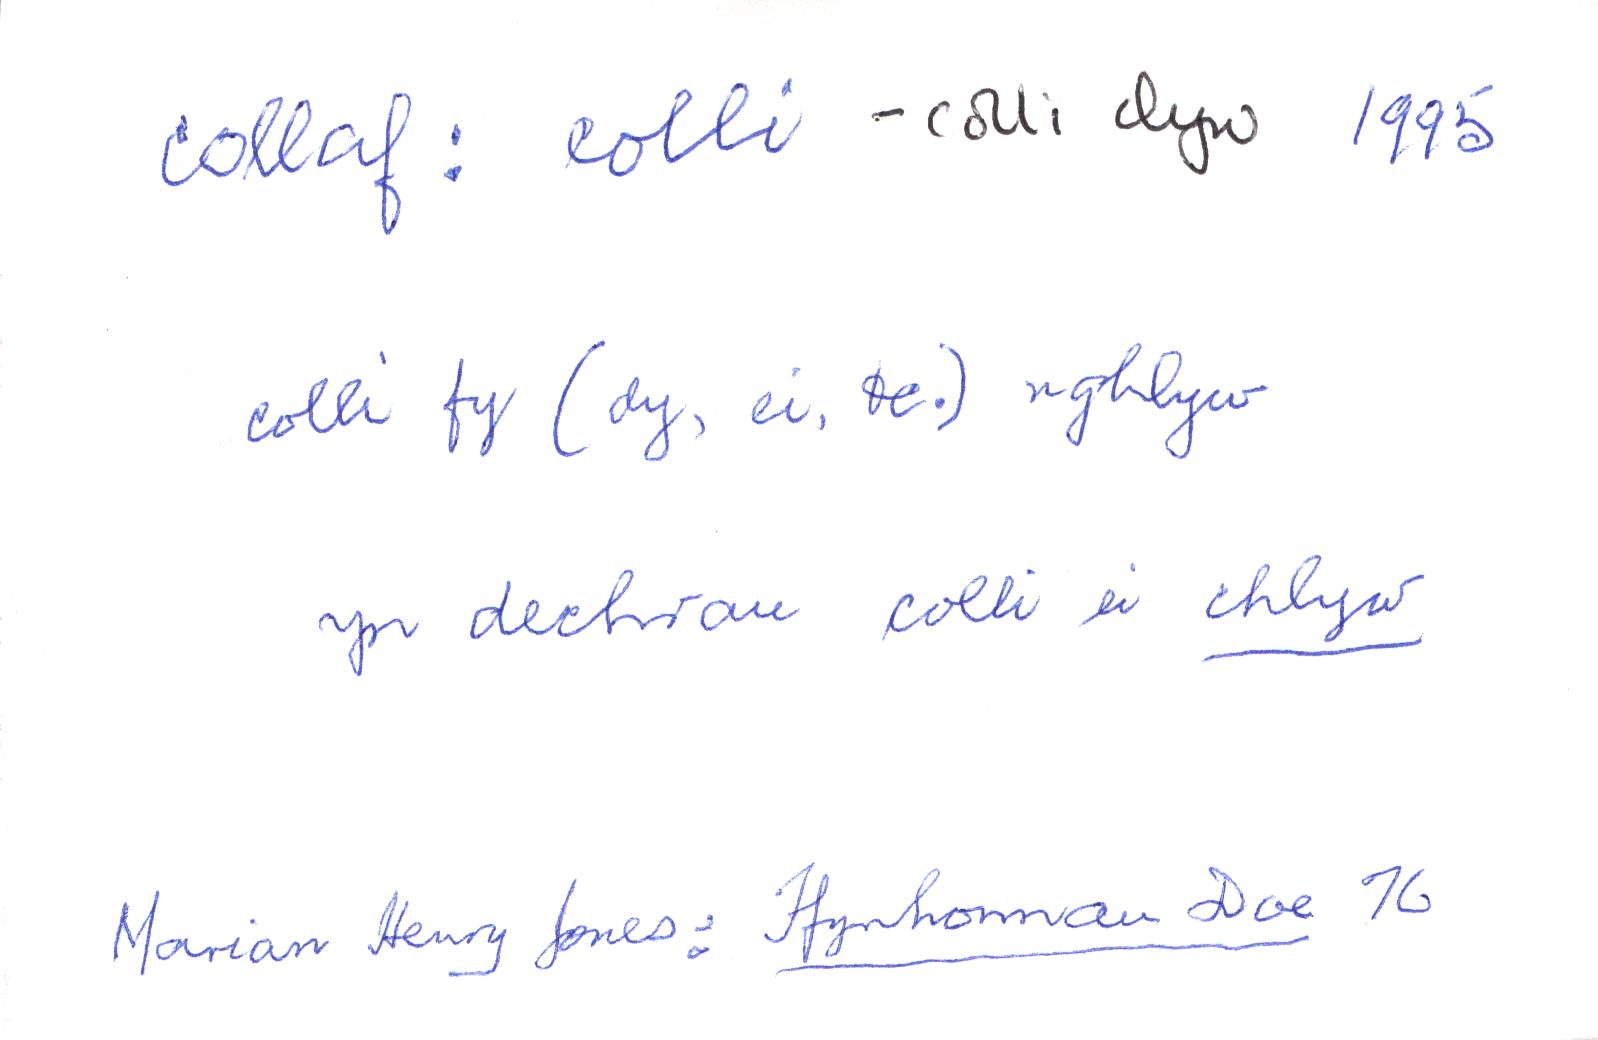 collaf: colli - colli clyw 1995
colli fy (dy, ei, &c.) nghlyw
yn dechrau colli ei chlyw
Marian Henry Jones: Ffynhonnau Doe 76